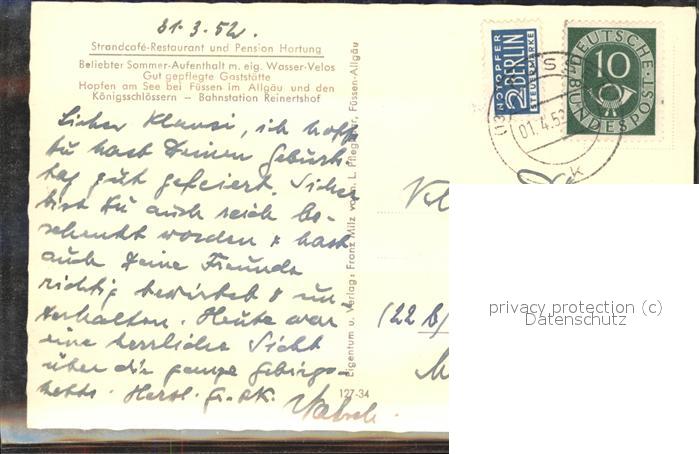 31.3.52.
Strandcafé-Restaurant und Pension Hartung
Beliebter Sommer-Aufenthalt m. eig. Wasser-Velos
Gut gepflegte Gaststätte
Hopfen am See bei Füssen im Allgäu und den
Königsschlössern – Bahnstation Reinertshof
Lieber Klausi, ich hoffe
du hast Deinen Geburts
tag gut gefeiert. Sicher
bist Du auch reich be-
schenkt worden & hast
auch Deine Freunde
richtig bewirtet & un-
terhalten. Heute war
eine herrliche Sicht
über die ganze Gebirgs-
kette. Herzl.
Eigentum u. Verlag: Franz Milz vorm. L. Pfleghar, Füssen-Allgäu
127-34
NOTOPFER
2 BERLIN
STEUERMARKE
DEUTSCHE
10
BUNDESPOST
01.4.52
(22 B)
privacy protection (c)
Datenschutz